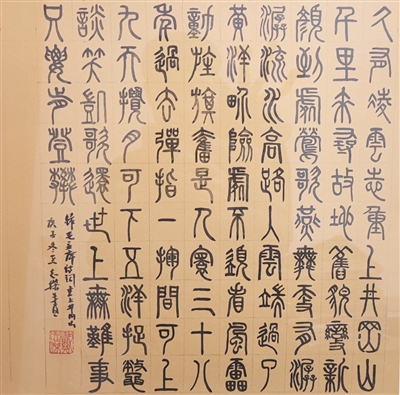 久有凌雲志重上井岡山
千里来尋故地舊貌變新
顏到處鶯歌燕舞更有潺
潺流水高路入雲端過了
黄洋界險處不須看風雷
動旌旗奮是人寰三十八
年過去彈指一揮間可上
九天攬月可下五洋捉鱉
談笑凱歌還世上無難事
只要肯登攀
錄毛主席詩詞重上井岡山
庚子冬